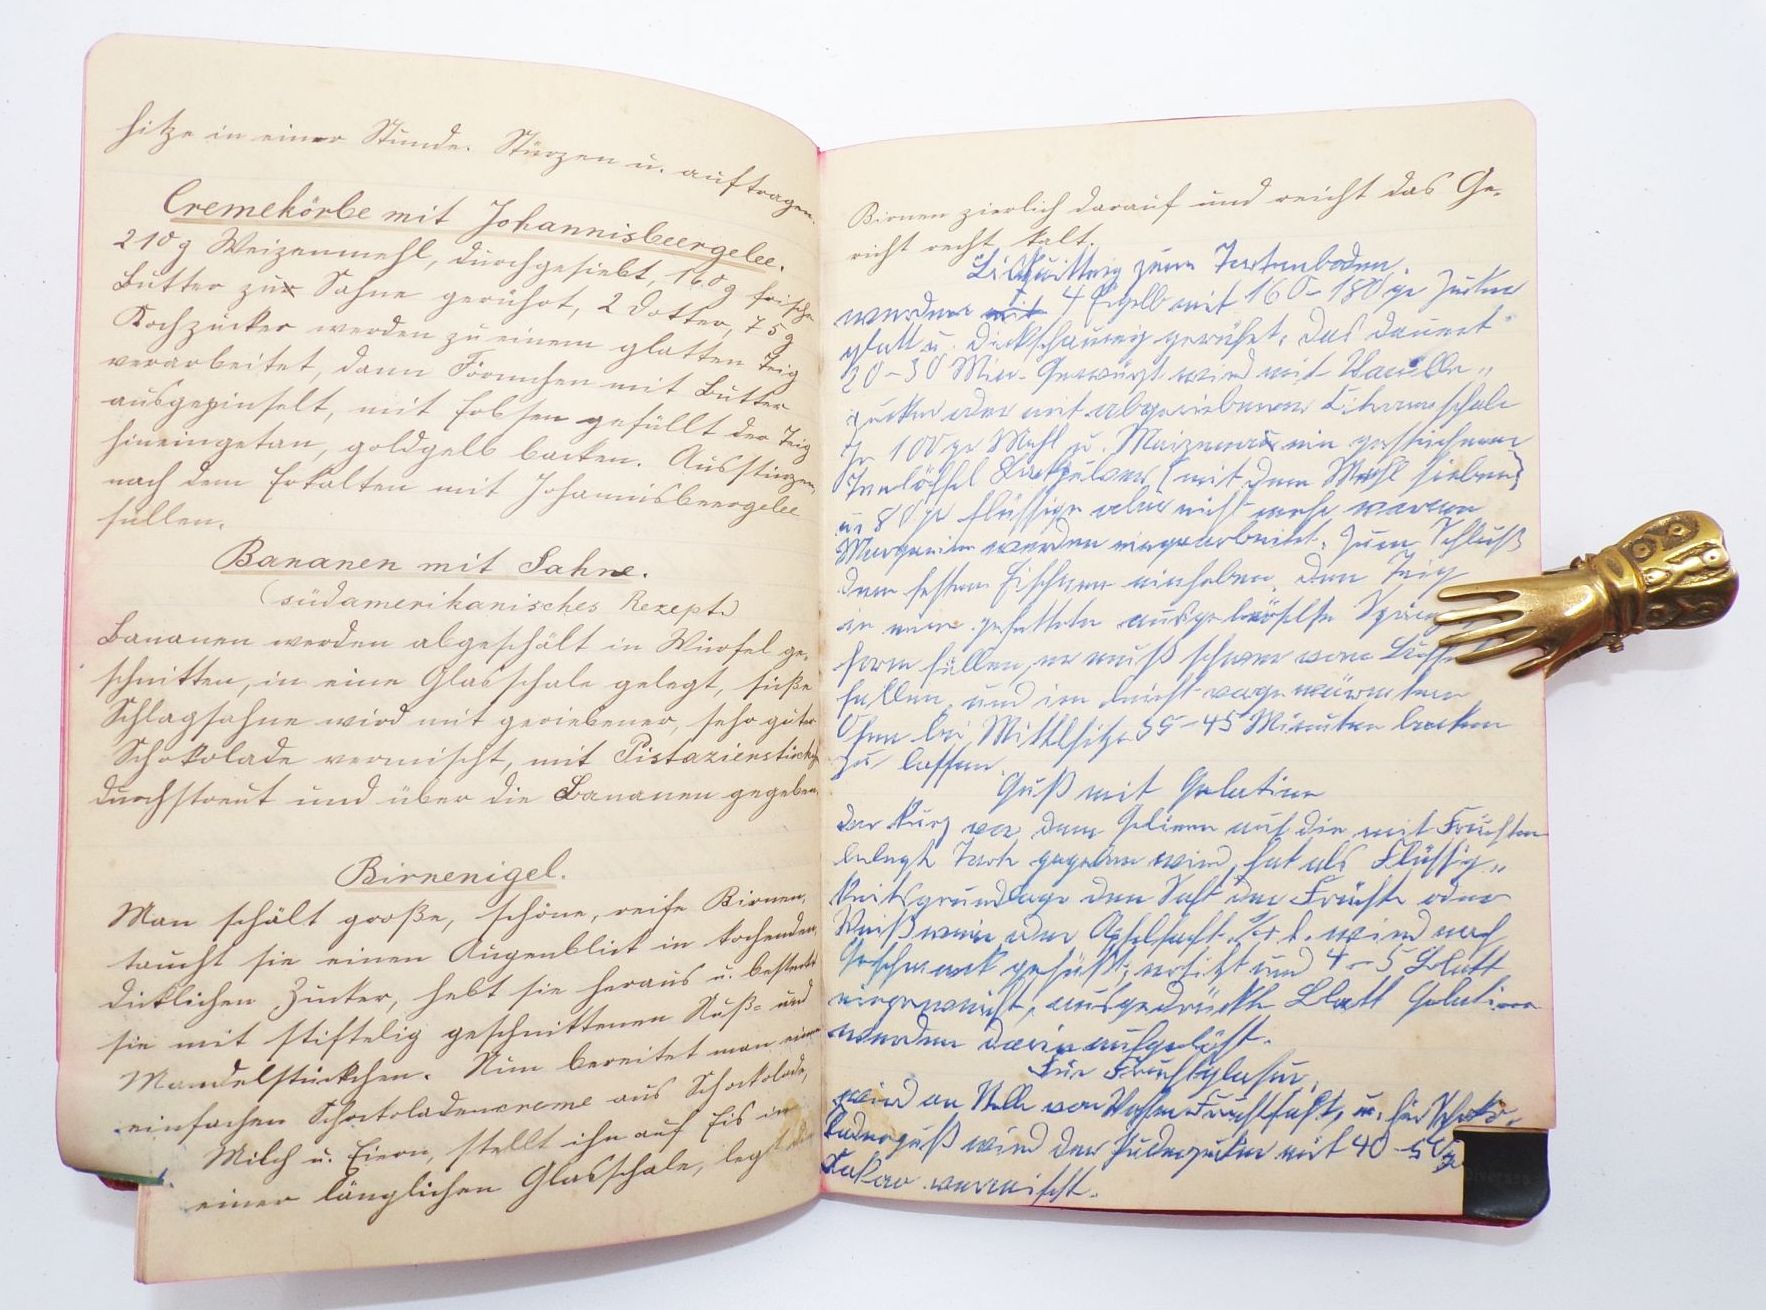 hitze in einer Stunde. Stürzen u. auftragen.
Cremekörbe mit Johannisbeergelee.
210 g Weizenmehl, durchgesiebt, 160 g frische
Butter zur Sahne gerührt, 2 Dotter, 75 g
Kochzucker werden zu einem glatten Teig
verarbeitet, dann Förmchen mit Butter
ausgepinselt, mit Erbsen gefüllt der Teig
hineingetan, goldgelb backen. Ausstürzen,
nach dem Erkalten mit Johannisbeergelee
füllen.
Bananen mit Sahne.
(südamerikanisches Rezept.)
Bananen werden abgeschält in Würfel ge-
schnitten, in eine Glasschale gelegt, süße
Schlagsahne wird mit geriebener, sehr guter
Schokolade vermischt, mit Pistazienstückch
durchstreut und über die Bananen gegeben.
Birnenigel.
Man schält große, schöne, reife Birnen,
taucht sie einen Augenblick in kochenden,
dicklichen Zucker, hebt sie heraus u. besteckt
sie mit stiftelig geschnittenen Nuß- und
Mandelstückchen. Nun bereitet man eine
einfachen Schockoladencreme aus Schockolade,
Milch u. Eiern, stellt ihn auf Eis in
einer länglichen Glasschale, legt die
Birnen zierlich darauf und reicht das Ge-
richt recht kalt.
Biskuitteig zum Tortenboden.
werden mit 4 Eigelb mit 160-180 gr Zucker
glatt u. dickschaumig gerührt, das dauert
20-30 Min. Gewürzt wird mit Vanille-
zucker oder mit abgeriebener Zitronenschale
100 gr Mehl u. Maizena ein gestrichener
Teelöffel Backpulver (mit dem Mehl sieben)
u. 80 gr flüssige aber nicht mehr warme
Margarine werden eingearbeitet. Zum Schluß
den festen Eischnee einheben. Den Teig
in eine gefettete ausgebröselte Spring
form füllen, er muß schwer vom Löffel
fallen und im leicht vorgewärmten
Ofen bei Mittelhitze 35-45 Minuten backen
zu lassen.
Guß mit Gelatine
der kurz vor dem Gelieren auf die mit Früchten
belegte Torte gegeben wird, hat als Flüssig-
keitsgrundlage den Saft der Früchte oder
Weißwein oder Apfelsaft. l. wird nach
Geschmack gesüßt, erhitzt und 4-5 Blatt
eingeweicht, ausgedrückte Blatt Gelatine
werden darin aufgelöst.
Für Fruchtglasur,
wird an Stelle von Wasser Fruchtsaft, u. für Schoko-
ladenguß wird der Puderzucker mit 40-50 g
Kakao vermischt.